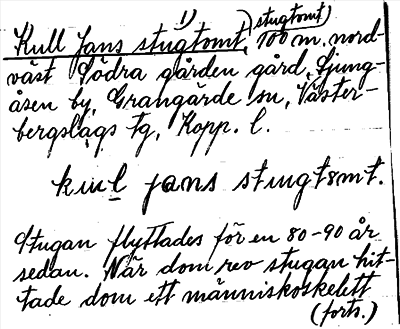 Kull Jans stugtomt, 1) (stugtomt) 100 m. nord-
väst Södra gården gård, Ljung-
åsen by, Grangärde sn, Väster-
bergslags tg, Kopp. l.
kul jans stugtomt.
Stugan flyttades för en 80-90 år
sedan. När dom rev stugan hit-
tade dom ett människoskelett
(forts.)